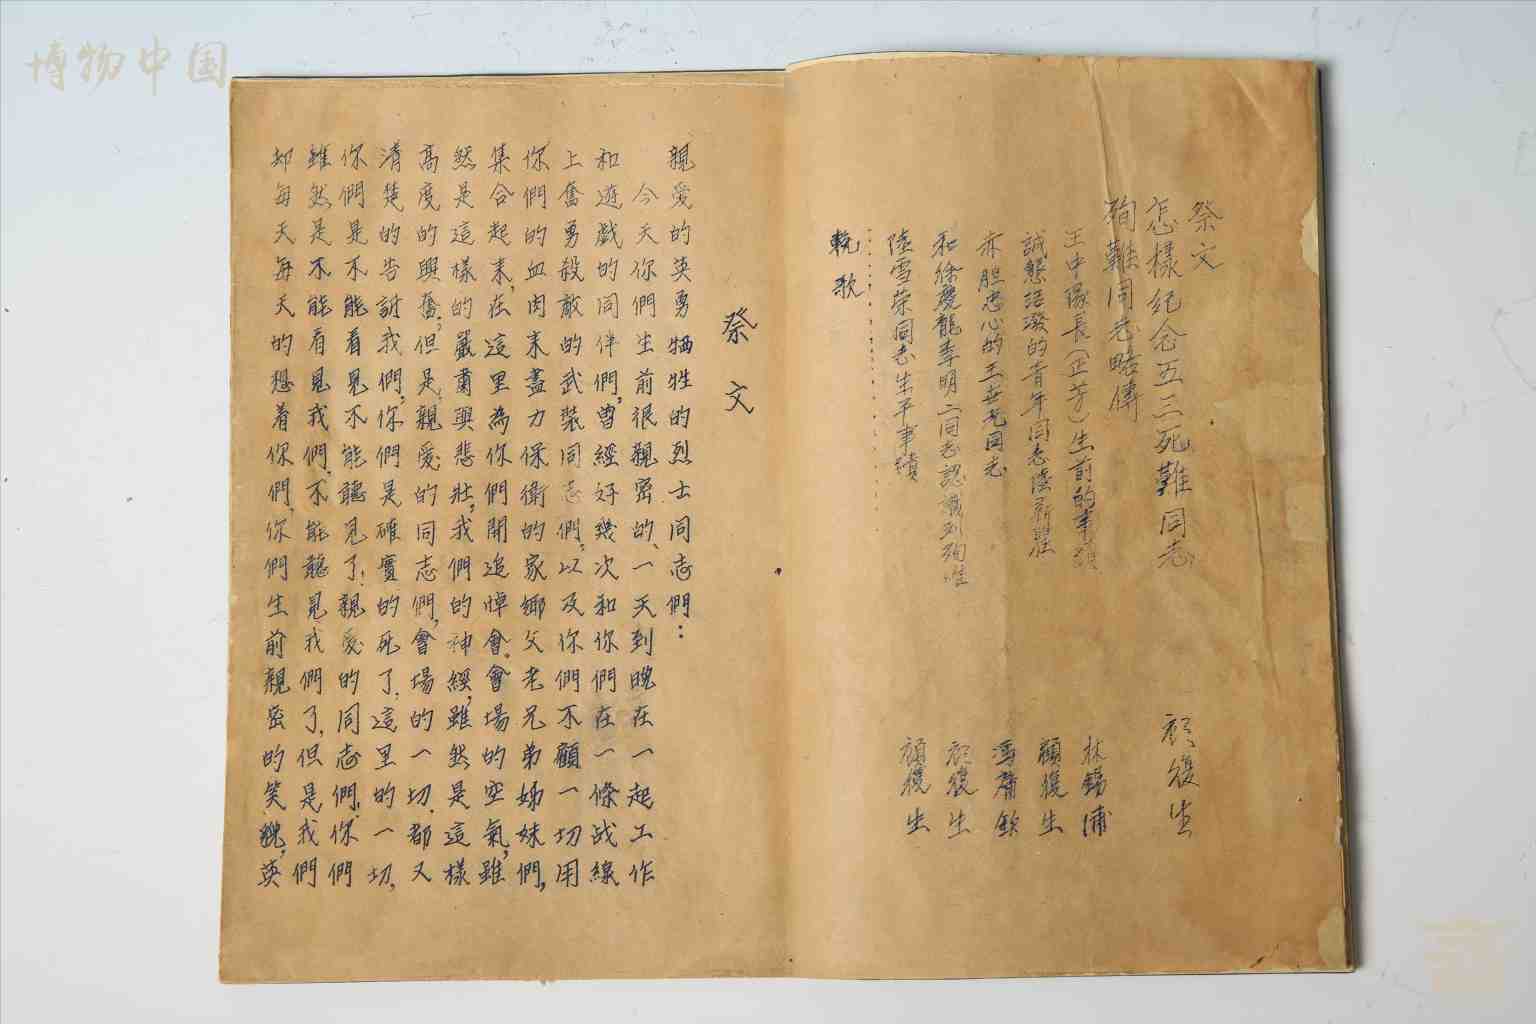 博物中国
祭文
怎樣紀念五三死難同志 顧復生
殉難同志略傳
王中隊長（正芳）生前的事蹟 林錫浦
誠懇活潑的青年同志陸新 顧復生
赤胆忠心的王世光同志 馮肅欽
和徐慶龍李明二同志認識到殉難 顧復生
陸雪荣同志生平事蹟 顧復生
輓歌
祭文
親愛的英勇牺牲的烈士同志們：
今天你們生前很親密的、一天到晚在一起工作
和遊戲的同伴們，曾經好幾次和你們在一條战線
上奮勇殺敵的武裝同志們，以及你們不顧一切用
你們的血肉來盡力保衛的家鄉父老兄弟姊妹們，
集合起來，在這里為你們開追悼會。會場的空氣，雖
然是這樣的嚴肅與悲壯，我們的神經，雖然是這樣
高度的興奮，但是，親愛的同志們，會場的一切，都又
清楚的告訴我們，你們是確實的死了，這里的一切，
你們是不能看見不能聽見了，親愛的同志們，你們
雖然是不能看見我們，不能聽見我們了，但是我們
却每天每天的想着你們，你們生前親密的笑貌，英